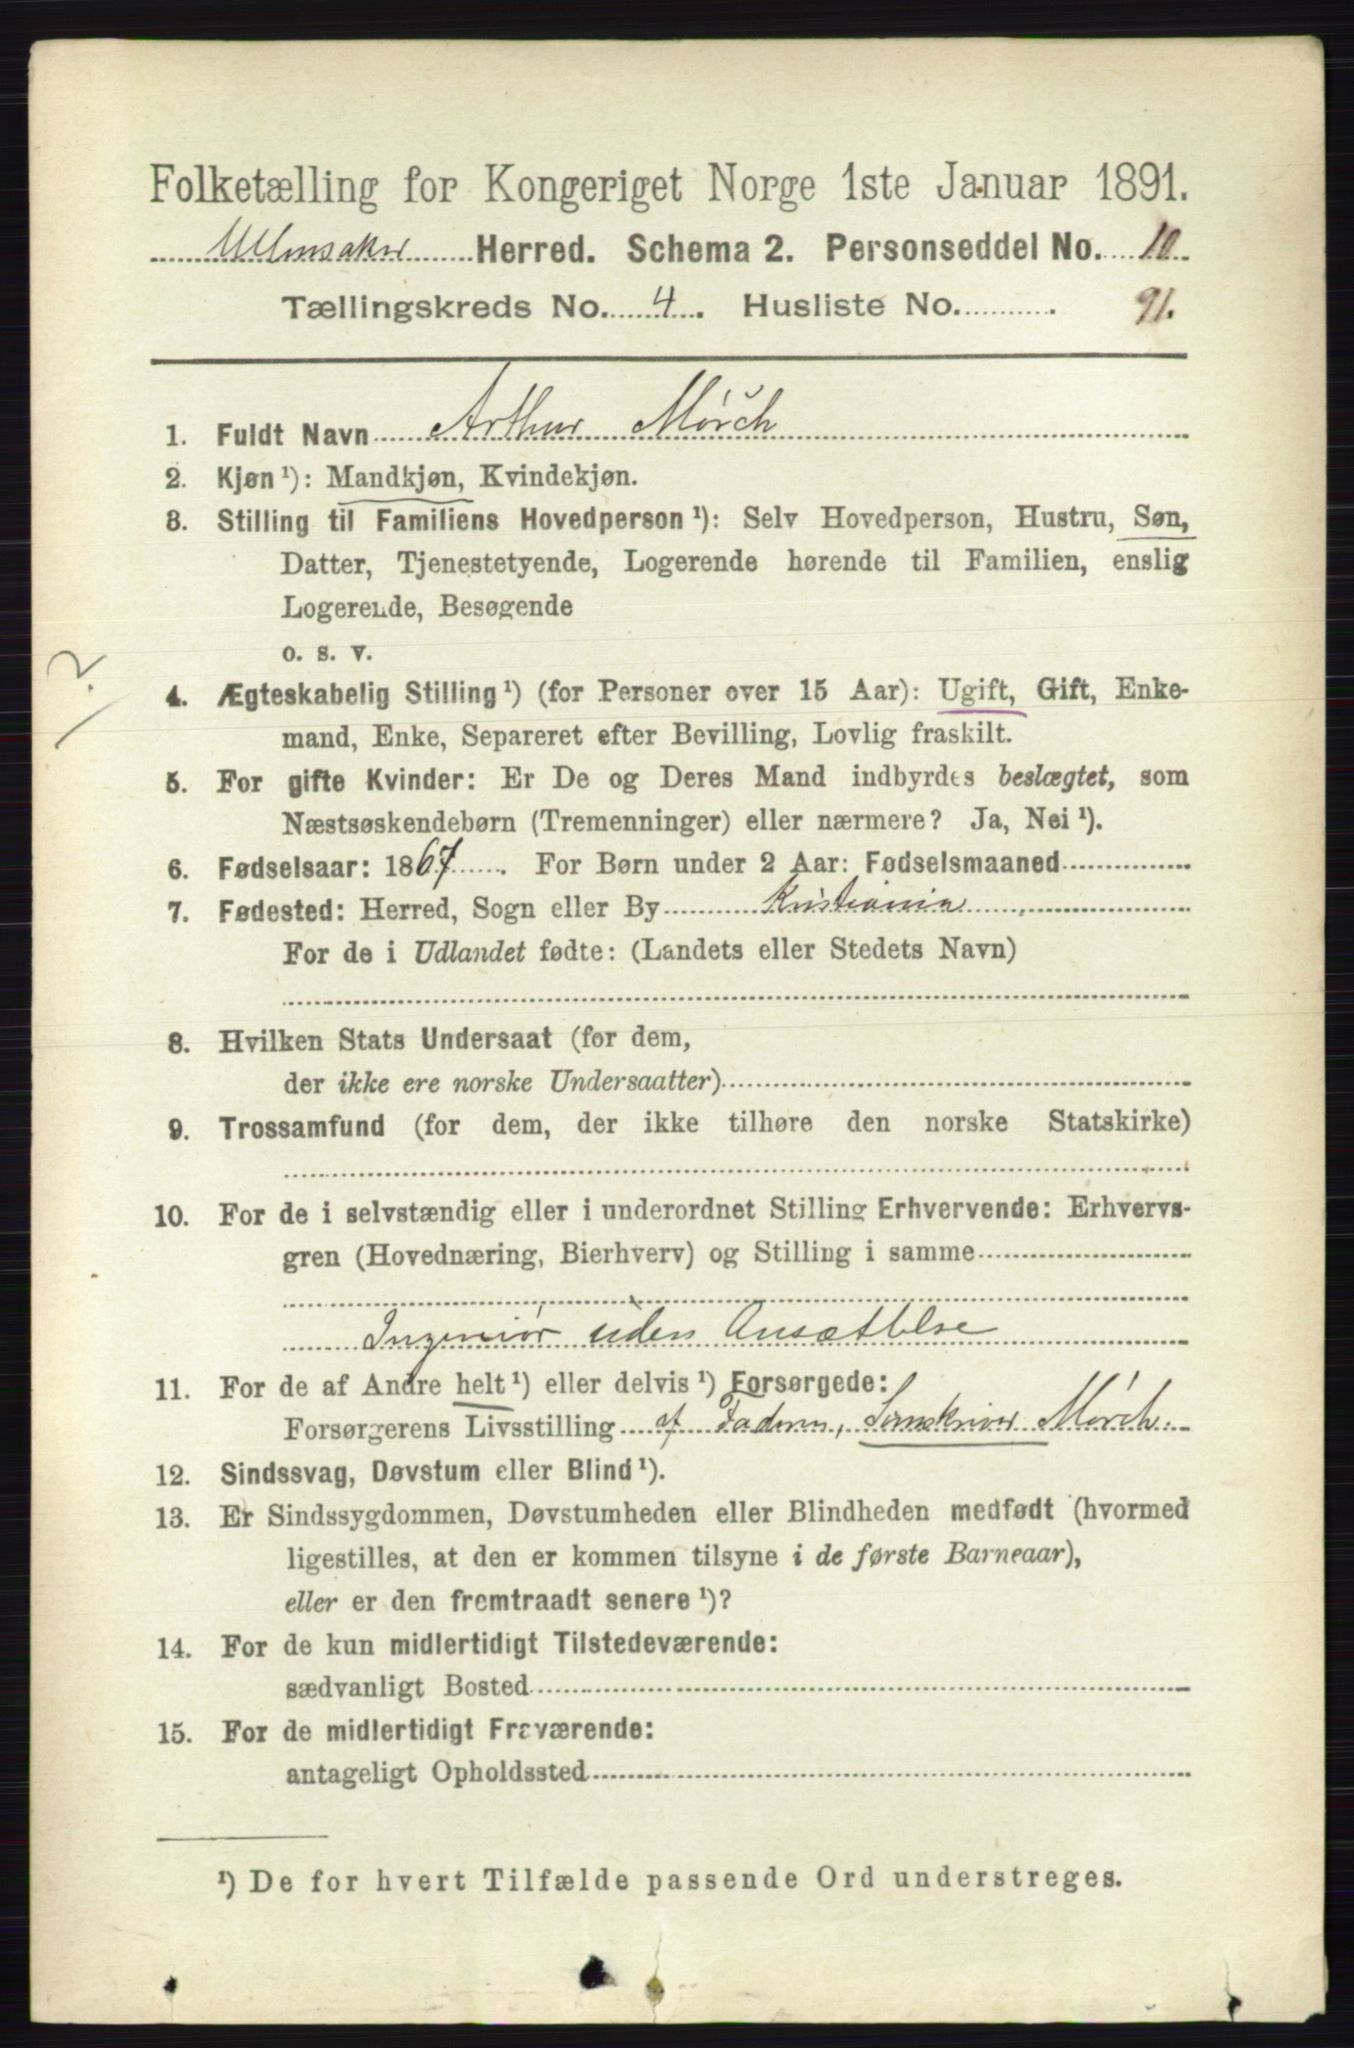 Folketælling for Kongeriget Norge 1ste Januar 1891.
Ullensaker Herred. Schema 2. Personseddel No. 10
Tællingskreds No. 4. Husliste No. 91.
1. Fuldt Navn Arthur Mørch
2. Kjøn ¹): Mandkjøn, Kvindekjøn.
3. Stilling til Familiens Hovedperson ¹): Selv Hovedperson, Hustru, Søn,
Datter, Tjenestetyende, Logerende hørende til Familien, enslig
Logerende, Besøgende
o. s. v.
4. Ægteskabelig Stilling ¹) (for Personer over 15 Aar): Ugift, Gift, Enke-
mand, Enke, Separeret efter Bevilling, Lovlig fraskilt.
5. For gifte Kvinder: Er De og Deres Mand indbyrdes beslægtet, som
Næstsøskendebørn (Tremenninger) eller nærmere? Ja, Nei ¹).
6. Fødselsaar: 1867. For Børn under 2 Aar: Fødselsmaaned
7. Fødested: Herred, Sogn eller By Kristiania
For de i Udlandet fødte: (Landets eller Stedets Navn)
8. Hvilken Stats Undersaat (for dem,
der ikke ere norske Undersaatter)
9. Trossamfund (for dem, der ikke tilhøre den norske Statskirke)
10. For de i selvstændig eller i underordnet Stilling Erhvervende: Erhvervs-
gren (Hovednæring, Bierhverv) og Stilling i samme
Ingeniør uden Ansættelse
11. For de af Andre helt ¹) eller delvis ¹) Forsørgede:
Forsørgerens Livsstilling af Faderen, Sorenskriver Mørch.
12. Sindssvag, Døvstum eller Blind ¹).
13. Er Sindssygdommen, Døvstumheden eller Blindheden medfødt (hvormed
ligestilles, at den er kommen tilsyne i de første Barneaar),
eller er den fremtraadt senere ¹)?
14. For de kun midlertidigt Tilstedeværende:
sædvanligt Bosted
15. For de midlertidigt Fraværende:
antageligt Opholdssted
¹) De for hvert Tilfælde passende Ord understreges.